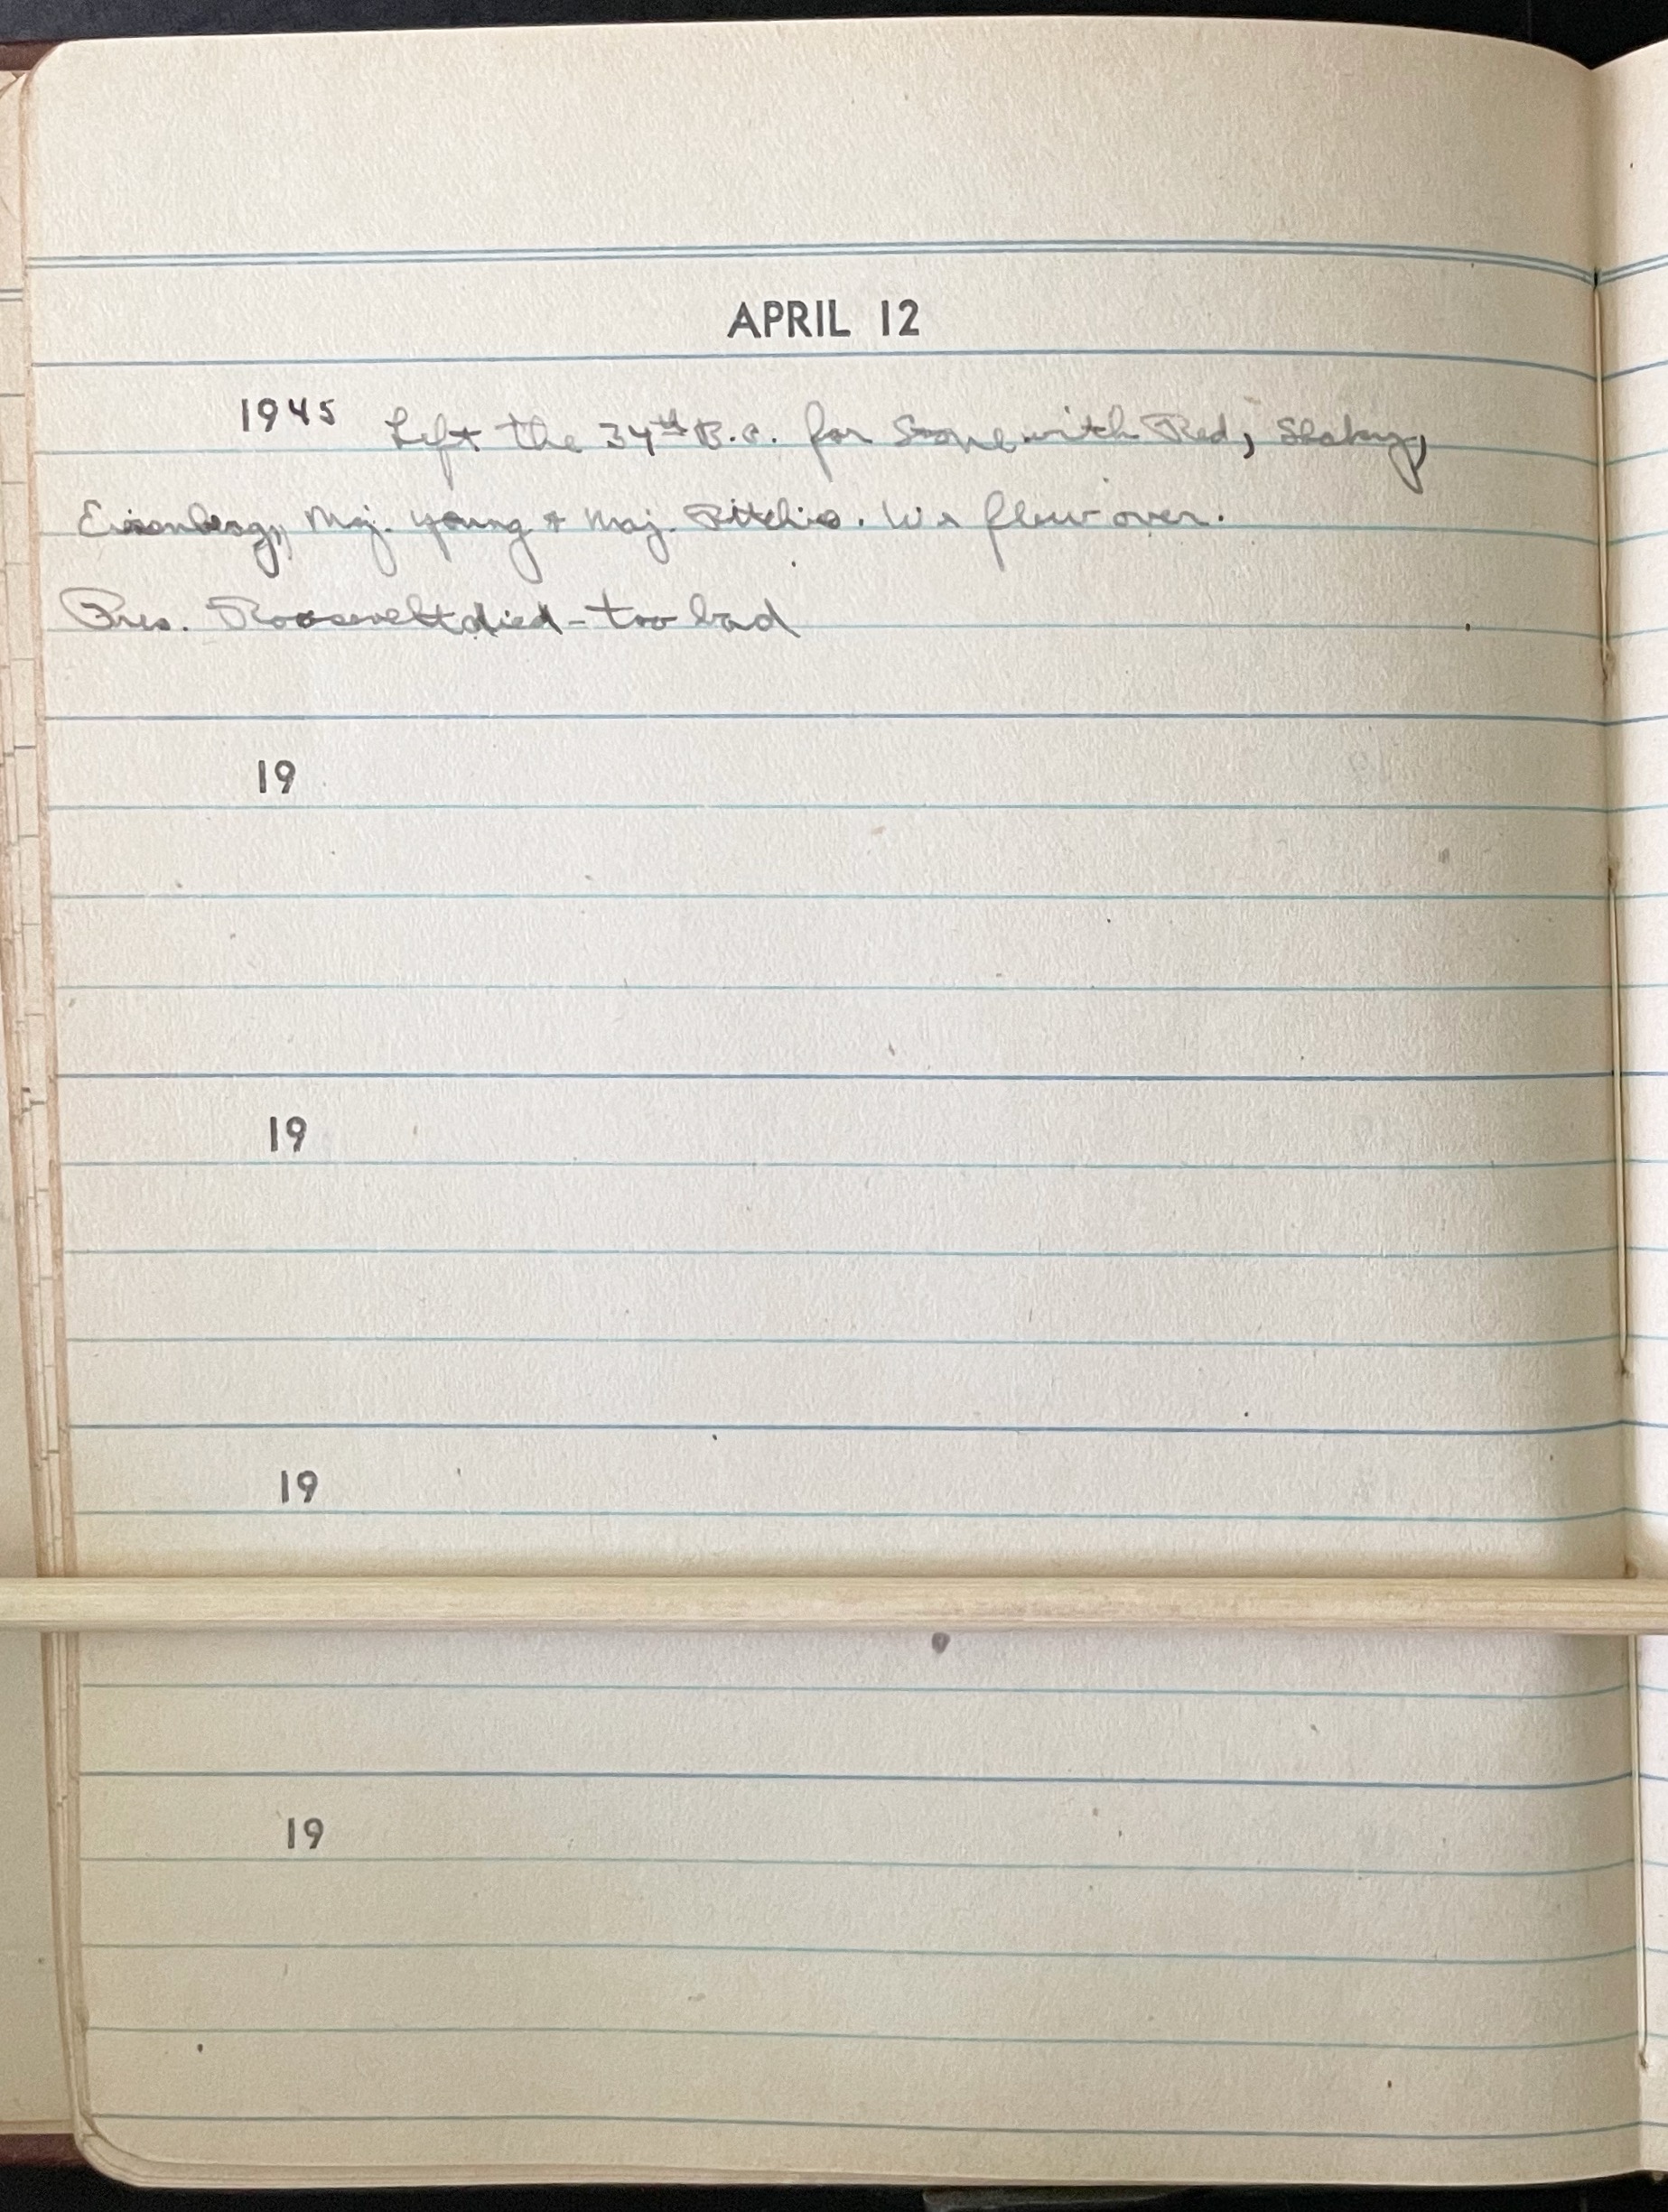 APRIL 12
1945 Left the 34th B.C. for Stone with Red, Shakey,
Eisenberg, Maj. Young + Maj. Ritchie. We flew over.
Pres. Roosevelt died - too bad
19
19
19
19